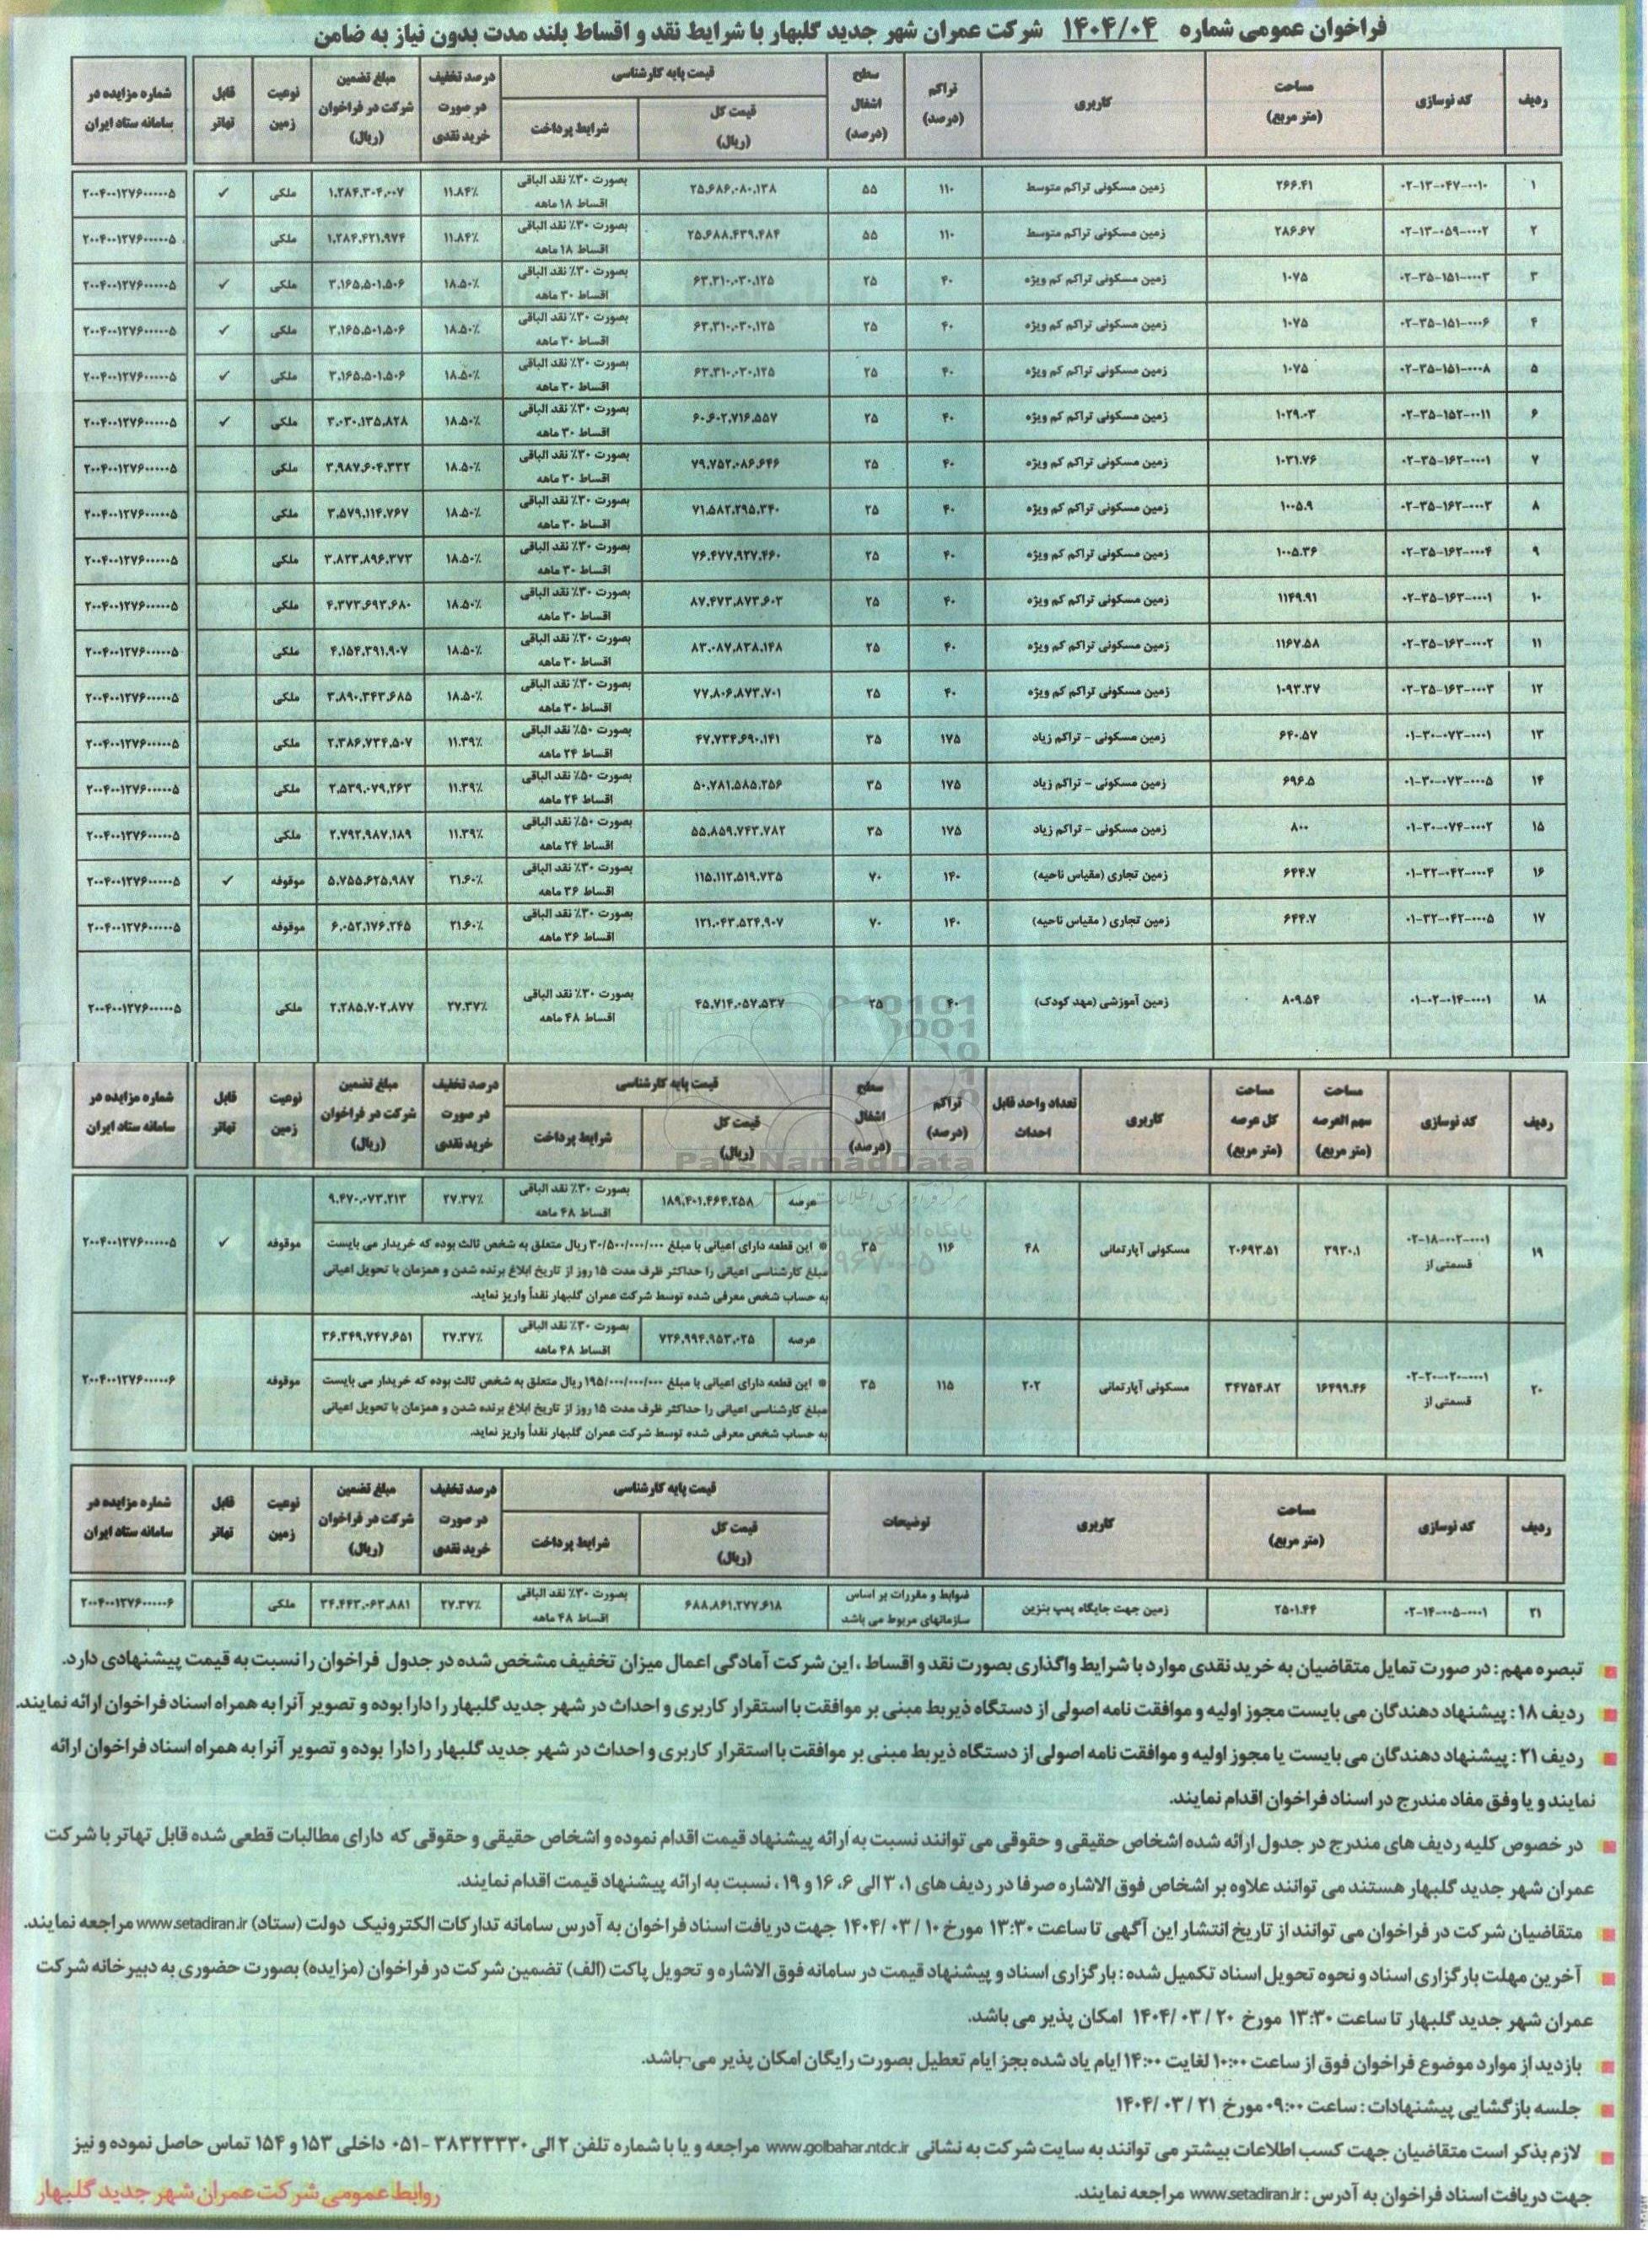 فراخوان عمومی شماره ۱۴۰۴/۰۴ شرکت عمران شهر جدید گلبهار با شرایط نقد و اقساط بلند مدت بدون نیاز به ضامن
ردیف | کد نوسازی | مساحت (متر مربع) | کاربری | تراکم (درصد) | سطح اشغال (درصد) | قیمت پایه کارشناسی: قیمت کل (ریال) | شرایط پرداخت | درصد تخفیف در صورت خرید نقدی | مبلغ تضمین شرکت در فراخوان (ریال) | نوعیت زمین | قابل تهاتر | شماره مزایده در سامانه ستاد ایران
۱ | ۰۲-۱۳-۰۴۷-۰۰۱۰ | ۲۶۶.۴۱ | زمین مسکونی تراکم متوسط | ۱۱۰ | ۵۵ | ۲۵,۶۸۶,۰۸۰,۱۳۸ | بصورت ۳۰٪ نقد الباقی اقساط ۱۸ ماهه | ۱۱.۸۴٪ | ۱,۲۸۴,۳۰۴,۰۰۷ | ملکی | ✓ | ۲۰۰۴۰۰۱۲۷۶۰۰۰۰۰۵
۲ | ۰۲-۱۳-۰۵۹-۰۰۰۲ | ۲۸۶.۶۷ | زمین مسکونی تراکم متوسط | ۱۱۰ | ۵۵ | ۲۵,۶۸۸,۴۳۹,۴۸۴ | بصورت ۳۰٪ نقد الباقی اقساط ۱۸ ماهه | ۱۱.۸۴٪ | ۱,۲۸۴,۴۲۱,۹۷۴ | ملکی | ۲۰۰۴۰۰۱۲۷۶۰۰۰۰۰۵
۳ | ۰۲-۳۵-۱۵۱-۰۰۰۳ | ۱۰۷۵ | زمین مسکونی تراکم کم ویژه | ۴۰ | ۲۵ | ۶۳,۳۱۰,۰۳۰,۱۲۵ | بصورت ۳۰٪ نقد الباقی اقساط ۳۰ ماهه | ۱۸.۵۰٪ | ۳,۱۶۵,۵۰۱,۵۰۶ | ملکی | ✓ | ۲۰۰۴۰۰۱۲۷۶۰۰۰۰۰۵
۴ | ۰۲-۳۵-۱۵۱-۰۰۰۶ | ۱۰۷۵ | زمین مسکونی تراکم کم ویژه | ۴۰ | ۲۵ | ۶۳,۳۱۰,۰۳۰,۱۲۵ | بصورت ۳۰٪ نقد الباقی اقساط ۳۰ ماهه | ۱۸.۵۰٪ | ۳,۱۶۵,۵۰۱,۵۰۶ | ملکی | ✓ | ۲۰۰۴۰۰۱۲۷۶۰۰۰۰۰۵
۵ | ۰۲-۳۵-۱۵۱-۰۰۰۸ | ۱۰۷۵ | زمین مسکونی تراکم کم ویژه | ۴۰ | ۲۵ | ۶۳,۳۱۰,۰۳۰,۱۲۵ | بصورت ۳۰٪ نقد الباقی اقساط ۳۰ ماهه | ۱۸.۵۰٪ | ۳,۱۶۵,۵۰۱,۵۰۶ | ملکی | ✓ | ۲۰۰۴۰۰۱۲۷۶۰۰۰۰۰۵
۶ | ۰۲-۳۵-۱۵۲-۰۰۱۱ | ۱۰۲۹.۰۳ | زمین مسکونی تراکم کم ویژه | ۴۰ | ۲۵ | ۶۰,۶۰۲,۷۱۶,۵۵۷ | بصورت ۳۰٪ نقد الباقی اقساط ۳۰ ماهه | ۱۸.۵۰٪ | ۳,۰۳۰,۱۳۵,۸۲۸ | ملکی | ✓ | ۲۰۰۴۰۰۱۲۷۶۰۰۰۰۰۵
۷ | ۰۲-۳۵-۱۶۲-۰۰۰۱ | ۱۰۳۱.۷۶ | زمین مسکونی تراکم کم ویژه | ۴۰ | ۲۵ | ۷۹,۷۵۲,۰۸۶,۶۴۶ | بصورت ۳۰٪ نقد الباقی اقساط ۳۰ ماهه | ۱۸.۵۰٪ | ۳,۹۸۷,۶۰۴,۳۳۲ | ملکی | ۲۰۰۴۰۰۱۲۷۶۰۰۰۰۰۵
۸ | ۰۲-۳۵-۱۶۲-۰۰۰۳ | ۱۰۰۵.۹ | زمین مسکونی تراکم کم ویژه | ۴۰ | ۲۵ | ۷۱,۵۸۲,۲۹۵,۳۴۰ | بصورت ۳۰٪ نقد الباقی اقساط ۳۰ ماهه | ۱۸.۵۰٪ | ۳,۵۷۹,۱۱۴,۷۶۷ | ملکی | ۲۰۰۴۰۰۱۲۷۶۰۰۰۰۰۵
۹ | ۰۲-۳۵-۱۶۲-۰۰۰۴ | ۱۰۰۵.۳۶ | زمین مسکونی تراکم کم ویژه | ۴۰ | ۲۵ | ۷۶,۴۷۷,۹۲۷,۴۶۰ | بصورت ۳۰٪ نقد الباقی اقساط ۳۰ ماهه | ۱۸.۵۰٪ | ۳,۸۲۳,۸۹۶,۳۷۳ | ملکی | ۲۰۰۴۰۰۱۲۷۶۰۰۰۰۰۵
۱۰ | ۰۲-۳۵-۱۶۳-۰۰۰۱ | ۱۱۴۹.۹۱ | زمین مسکونی تراکم کم ویژه | ۴۰ | ۲۵ | ۸۷,۴۷۳,۸۷۳,۶۰۳ | بصورت ۳۰٪ نقد الباقی اقساط ۳۰ ماهه | ۱۸.۵۰٪ | ۴,۳۷۳,۶۹۳,۶۸۰ | ملکی | ۲۰۰۴۰۰۱۲۷۶۰۰۰۰۰۵
۱۱ | ۰۲-۳۵-۱۶۳-۰۰۰۲ | ۱۱۶۷.۵۸ | زمین مسکونی تراکم کم ویژه | ۴۰ | ۲۵ | ۸۳,۰۸۷,۸۳۸,۱۴۸ | بصورت ۳۰٪ نقد الباقی اقساط ۳۰ ماهه | ۱۸.۵۰٪ | ۴,۱۵۴,۳۹۱,۹۰۷ | ملکی | ۲۰۰۴۰۰۱۲۷۶۰۰۰۰۰۵
۱۲ | ۰۲-۳۵-۱۶۳-۰۰۰۳ | ۱۰۹۳.۳۷ | زمین مسکونی تراکم کم ویژه | ۴۰ | ۲۵ | ۷۷,۸۰۶,۸۷۳,۷۰۱ | بصورت ۳۰٪ نقد الباقی اقساط ۳۰ ماهه | ۱۸.۵۰٪ | ۳,۸۹۰,۳۴۳,۶۸۵ | ملکی | ۲۰۰۴۰۰۱۲۷۶۰۰۰۰۰۵
۱۳ | ۰۱-۳۰-۰۷۳-۰۰۰۱ | ۶۴۰.۵۷ | زمین مسکونی - تراکم زیاد | ۱۷۵ | ۳۵ | ۴۷,۷۳۴,۶۹۰,۱۴۱ | بصورت ۵۰٪ نقد الباقی اقساط ۲۴ ماهه | ۱۱.۳۹٪ | ۲,۳۸۶,۷۳۴,۵۰۷ | ملکی | ۲۰۰۴۰۰۱۲۷۶۰۰۰۰۰۵
۱۴ | ۰۱-۳۰-۰۷۳-۰۰۰۵ | ۶۹۶.۵ | زمین مسکونی - تراکم زیاد | ۱۷۵ | ۳۵ | ۵۰,۷۸۱,۵۸۵,۲۵۶ | بصورت ۵۰٪ نقد الباقی اقساط ۲۴ ماهه | ۱۱.۳۹٪ | ۲,۵۳۹,۰۷۹,۲۶۳ | ملکی | ۲۰۰۴۰۰۱۲۷۶۰۰۰۰۰۵
۱۵ | ۰۱-۳۰-۰۷۴-۰۰۰۲ | ۸۰۰ | زمین مسکونی - تراکم زیاد | ۱۷۵ | ۳۵ | ۵۵,۸۵۹,۷۴۳,۷۸۲ | بصورت ۵۰٪ نقد الباقی اقساط ۲۴ ماهه | ۱۱.۳۹٪ | ۲,۷۹۲,۹۸۷,۱۸۹ | ملکی | ۲۰۰۴۰۰۱۲۷۶۰۰۰۰۰۵
۱۶ | ۰۱-۲۲-۰۴۲-۰۰۰۴ | ۶۴۴.۷ | زمین تجاری (مقیاس ناحیه) | ۱۴۰ | ۷۰ | ۱۱۵,۱۱۲,۵۱۹,۷۳۵ | بصورت ۳۰٪ نقد الباقی اقساط ۳۶ ماهه | ۲۱.۶۰٪ | ۵,۷۵۵,۶۲۵,۹۸۷ | موقوفه | ✓ | ۲۰۰۴۰۰۱۲۷۶۰۰۰۰۰۵
۱۷ | ۰۱-۲۲-۰۴۲-۰۰۰۵ | ۶۴۴.۷ | زمین تجاری ( مقیاس ناحیه) | ۱۴۰ | ۷۰ | ۱۲۱,۰۴۳,۵۲۴,۹۰۷ | بصورت ۳۰٪ نقد الباقی اقساط ۳۶ ماهه | ۲۱.۶۰٪ | ۶,۰۵۲,۱۷۶,۲۴۵ | موقوفه | ۲۰۰۴۰۰۱۲۷۶۰۰۰۰۰۵
۱۸ | ۰۱-۰۲-۰۱۴-۰۰۰۱ | ۸۰۹.۵۴ | زمین آموزشی (مهد کودک) | ۴۰ | ۲۵ | ۴۵,۷۱۴,۰۵۷,۵۳۷ | بصورت ۳۰٪ نقد الباقی اقساط ۴۸ ماهه | ۲۷.۳۷٪ | ۲,۲۸۵,۷۰۲,۸۷۷ | ملکی | ۲۰۰۴۰۰۱۲۷۶۰۰۰۰۰۵
ردیف | کد نوسازی | مساحت سهم العرصه (متر مربع) | مساحت کل عرصه (متر مربع) | کاربری | تعداد واحد قابل احداث | تراکم (درصد) | سطح اشغال (درصد) | قیمت پایه کارشناسی: قیمت کل (ریال) | شرایط پرداخت | درصد تخفیف در صورت خرید نقدی | مبلغ تضمین شرکت در فراخوان (ریال) | نوعیت زمین | قابل تهاتر | شماره مزایده در سامانه ستاد ایران
۱۹ | ۰۲-۱۸-۰۰۲-۰۰۰۱ قسمتی از | ۳۹۳۰.۱ | ۲۰۶۹۳.۵۱ | مسکونی آپارتمانی | ۴۸ | ۱۱۶ | ۳۵ | عرصه | ۱۸۹,۴۰۱,۴۶۴,۲۵۸ | بصورت ۳۰٪ نقد الباقی اقساط ۴۸ ماهه | ۲۷.۳۷٪ | ۹,۴۷۰,۰۷۳,۲۱۳ | موقوفه | ✓ | ۲۰۰۴۰۰۱۲۷۶۰۰۰۰۰۵
* این قطعه دارای اعیانی با مبلغ ۳۰/۵۰۰/۰۰۰/۰۰۰ ریال متعلق به شخص ثالث بوده که خریدار می بایست
مبلغ کارشناسی اعیانی را حداکثر ظرف مدت ۱۵ روز از تاریخ ابلاغ برنده شدن و همزمان با تحویل اعیانی
به حساب شخص معرفی شده توسط شرکت عمران گلبهار نقداً واریز نماید.
۲۰ | ۰۲-۲۰-۰۲۰-۰۰۰۱ قسمتی از | ۱۶۴۹۹.۴۶ | ۳۴۷۵۴.۸۲ | مسکونی آپارتمانی | ۲۰۲ | ۱۱۵ | ۳۵ | عرصه | ۷۲۶,۹۹۴,۹۵۳,۰۲۵ | بصورت ۳۰٪ نقد الباقی اقساط ۴۸ ماهه | ۲۷.۳۷٪ | ۳۶,۳۴۹,۷۴۷,۶۵۱ | موقوفه | ۲۰۰۴۰۰۱۲۷۶۰۰۰۰۰۶
* این قطعه دارای اعیانی با مبلغ ۱۹۵/۰۰۰/۰۰۰/۰۰۰ ریال متعلق به شخص ثالث بوده که خریدار می بایست
مبلغ کارشناسی اعیانی را حداکثر ظرف مدت ۱۵ روز از تاریخ ابلاغ برنده شدن و همزمان با تحویل اعیانی
به حساب شخص معرفی شده توسط شرکت عمران گلبهار نقداً واریز نماید.
ردیف | کد نوسازی | مساحت (متر مربع) | کاربری | توضیحات | قیمت پایه کارشناسی: قیمت کل (ریال) | شرایط پرداخت | درصد تخفیف در صورت خرید نقدی | مبلغ تضمین شرکت در فراخوان (ریال) | نوعیت زمین | قابل تهاتر | شماره مزایده در سامانه ستاد ایران
۲۱ | ۰۲-۱۴-۰۰۵-۰۰۰۱ | ۲۵۰۱.۴۴ | زمین جهت جایگاه پمپ بنزین | ضوابط و مقررات بر اساس سازمانهای مربوط می باشد | ۶۸۸,۸۶۱,۲۷۷,۶۱۸ | بصورت ۳۰٪ نقد الباقی اقساط ۴۸ ماهه | ۲۷.۳۷٪ | ۳۴,۴۴۳,۰۶۳,۸۸۱ | ملکی | ۲۰۰۴۰۰۱۲۷۶۰۰۰۰۰۶
تبصره مهم : در صورت تمایل متقاضیان به خرید نقدی موارد با شرایط واگذاری بصورت نقد و اقساط ، این شرکت آمادگی اعمال میزان تخفیف مشخص شده در جدول فراخوان را نسبت به قیمت پیشنهادی دارد.
ردیف ۱۸ : پیشنهاد دهندگان می بایست مجوز اولیه و موافقت نامه اصولی از دستگاه ذیربط مبنی بر موافقت با استقرار کاربری و احداث در شهر جدید گلبهار را دارا بوده و تصویر آنرا به همراه اسناد فراخوان ارائه نمایند.
ردیف ۲۱ : پیشنهاد دهندگان می بایست یا مجوز اولیه و موافقت نامه اصولی از دستگاه ذیربط مبنی بر موافقت با استقرار کاربری و احداث در شهر جدید گلبهار را دارا بوده و تصویر آنرا به همراه اسناد فراخوان ارائه
نمایند و یا وفق مفاد مندرج در اسناد فراخوان اقدام نمایند.
در خصوص کلیه ردیف های مندرج در جدول ارائه شده اشخاص حقیقی و حقوقی می توانند نسبت به ارائه پیشنهاد قیمت اقدام نموده و اشخاص حقیقی و حقوقی که دارای مطالبات قطعی شده قابل تهاتر با شرکت
عمران شهر جدید گلبهار هستند می توانند علاوه بر اشخاص فوق الاشاره صرفا در ردیف های ۱، ۳ الی ۶، ۱۶ و ۱۹ ، نسبت به ارائه پیشنهاد قیمت اقدام نمایند.
متقاضیان شرکت در فراخوان می توانند از تاریخ انتشار این آگهی تا ساعت ۱۳:۳۰ مورخ ۱۰ / ۰۳ /۱۴۰۴ جهت دریافت اسناد فراخوان به آدرس سامانه تدارکات الکترونیک دولت (ستاد) www.setadiran.ir مراجعه نمایند.
آخرین مهلت بارگزاری اسناد و نحوه تحویل اسناد تکمیل شده : بارگزاری اسناد و پیشنهاد قیمت در سامانه فوق الاشاره و تحویل پاکت (الف) تضمین شرکت در فراخوان (مزایده) بصورت حضوری به دبیرخانه شرکت
عمران شهر جدید گلبهار تا ساعت ۱۳:۳۰ مورخ ۲۰ / ۰۳ /۱۴۰۴ امکان پذیر می باشد.
بازدید از موارد موضوع فراخوان فوق از ساعت ۱۰:۰۰ لغایت ۱۴:۰۰ ایام یاد شده بجز ایام تعطیل بصورت رایگان امکان پذیر می باشد.
جلسه بازگشایی پیشنهادات : ساعت ۰۹:۰۰ مورخ ۲۱ / ۰۳ /۱۴۰۴
لازم بذکر است متقاضیان جهت کسب اطلاعات بیشتر می توانند به سایت شرکت به نشانی www.golbahar.ntdc.ir مراجعه و یا با شماره تلفن ۲ الی ۳۸۳۲۳۳۳۰-۰۵۱ داخلی ۱۵۳ و ۱۵۴ تماس حاصل نموده و نیز
جهت دریافت اسناد فراخوان به آدرس : www.setadiran.ir مراجعه نمایند.
روابط عمومی شرکت عمران شهر جدید گلبهار
ParsNamadData